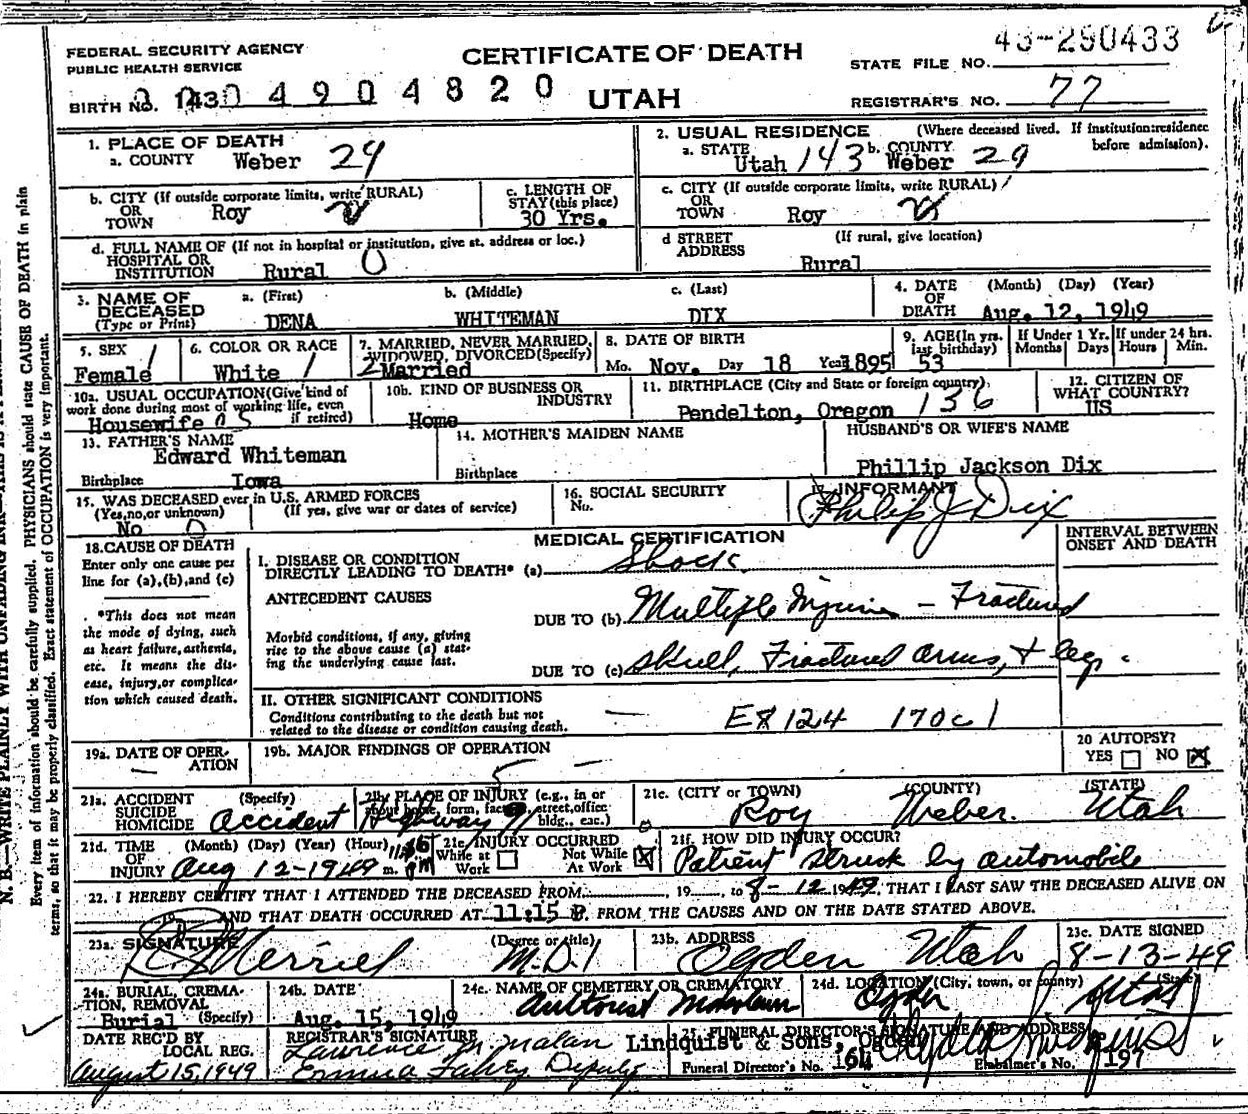 FEDERAL SECURITY AGENCY
PUBLIC HEALTH SERVICE
CERTIFICATE OF DEATH
UTAH
STATE FILE NO. 43-290433
BIRTH NO. 4904820
REGISTRAR'S NO. 77
1. PLACE OF DEATH
a. COUNTY Weber 29
2. USUAL RESIDENCE (Where deceased lived. If institution: residence before admission).
a. STATE Utah 143 b. COUNTY Weber 29
b. CITY (If outside corporate limits, write RURAL)
OR TOWN Roy
c. LENGTH OF STAY (this place)
30 Yrs.
c. CITY (If outside corporate limits, write RURAL)
OR TOWN Roy
d. FULL NAME OF (If not in hospital or institution, give st. address or loc.)
HOSPITAL OR INSTITUTION Rural 0
d STREET ADDRESS (If rural, give location)
Rural
3. NAME OF DECEASED (Type or Print)
a. (First) b. (Middle) c. (Last)
DENA WHITEMAN DIX
4. DATE OF DEATH (Month) (Day) (Year)
Aug. 12, 1949
5. SEX 1
Female
6. COLOR OR RACE
White 1
7. MARRIED, NEVER MARRIED, WIDOWED, DIVORCED (Specify)
2 Married
8. DATE OF BIRTH
Mo. Nov. Day 18 Year 1895
9. AGE (In yrs. last birthday)
53
If Under 1 Yr. Months Days
If under 24 hrs. Hours Min.
10a. USUAL OCCUPATION (Give kind of work done during most of working life, even if retired)
Housewife
10b. KIND OF BUSINESS OR INDUSTRY
Home
11. BIRTHPLACE (City and State or foreign country)
Pendelton, Oregon 136
12. CITIZEN OF WHAT COUNTRY?
US
13. FATHER'S NAME
Edward Whiteman
Birthplace Iowa
14. MOTHER'S MAIDEN NAME
Birthplace
HUSBAND'S OR WIFE'S NAME
Phillip Jackson Dix
15. WAS DECEASED ever in U.S. ARMED FORCES
(Yes, no, or unknown) (If yes, give war or dates of service)
No 0
16. SOCIAL SECURITY No.
INFORMANT
Philip J Dix
MEDICAL CERTIFICATION
INTERVAL BETWEEN ONSET AND DEATH
18. CAUSE OF DEATH
Enter only one cause per line for (a), (b), and (c)
*This does not mean the mode of dying, such as heart failure, asthenia, etc. It means the disease, injury, or complication which caused death.
I. DISEASE OR CONDITION DIRECTLY LEADING TO DEATH* (a) Shock
ANTECEDENT CAUSES
Morbid conditions, if any, giving rise to the above cause (a) stating the underlying cause last.
DUE TO (b) Multiple Injuries - Fractured
DUE TO (c) Skull, Fractured arms, & leg.
II. OTHER SIGNIFICANT CONDITIONS
Conditions contributing to the death but not related to the disease or condition causing death.
E8124 170c1
19a. DATE OF OPERATION
19b. MAJOR FINDINGS OF OPERATION
20 AUTOPSY?
YES NO X
21a. ACCIDENT SUICIDE HOMICIDE (Specify)
Accident
21b. PLACE OF INJURY (e.g., in or about home, farm, factory, street, office bldg., eac.)
Highway 91
21c. (CITY OR TOWN) (COUNTY) (STATE)
Roy Weber. Utah
21d. TIME OF INJURY (Month) (Day) (Year) (Hour)
Aug 12-1949 m. PM
21e. INJURY OCCURRED
While at Work Not While At Work X
21f. HOW DID INJURY OCCUR?
Patient struck by automobile
22. I HEREBY CERTIFY THAT I ATTENDED THE DECEASED FROM 19, to 8-12 1949, THAT I LAST SAW THE DECEASED ALIVE ON
19 AND THAT DEATH OCCURRED AT 11:15 P. FROM THE CAUSES AND ON THE DATE STATED ABOVE.
23a. SIGNATURE (Degree or title)
Merrill M.D.
23b. ADDRESS
Ogden Utah
23c. DATE SIGNED
8-13-49
24a. BURIAL, CREMATION, REMOVAL (Specify)
Burial
24b. DATE
Aug. 15, 1949
24c. NAME OF CEMETERY OR CREMATORY
24d. LOCATION (City, town, or county) (State)
Ogden Utah
DATE REC'D BY LOCAL REG.
August 15, 1949
REGISTRAR'S SIGNATURE
Lawrence M Malan
Emma Fahey Deputy
25. FUNERAL DIRECTOR'S SIGNATURE AND ADDRESS
Lindquist & Sons, Ogden
Funeral Director's No. 164
Embalmer's No. 197
Every item of information should be carefully supplied. PHYSICIANS should state CAUSE OF DEATH in plain
terms, so that it may be properly classified. Exact statement of OCCUPATION is very important.